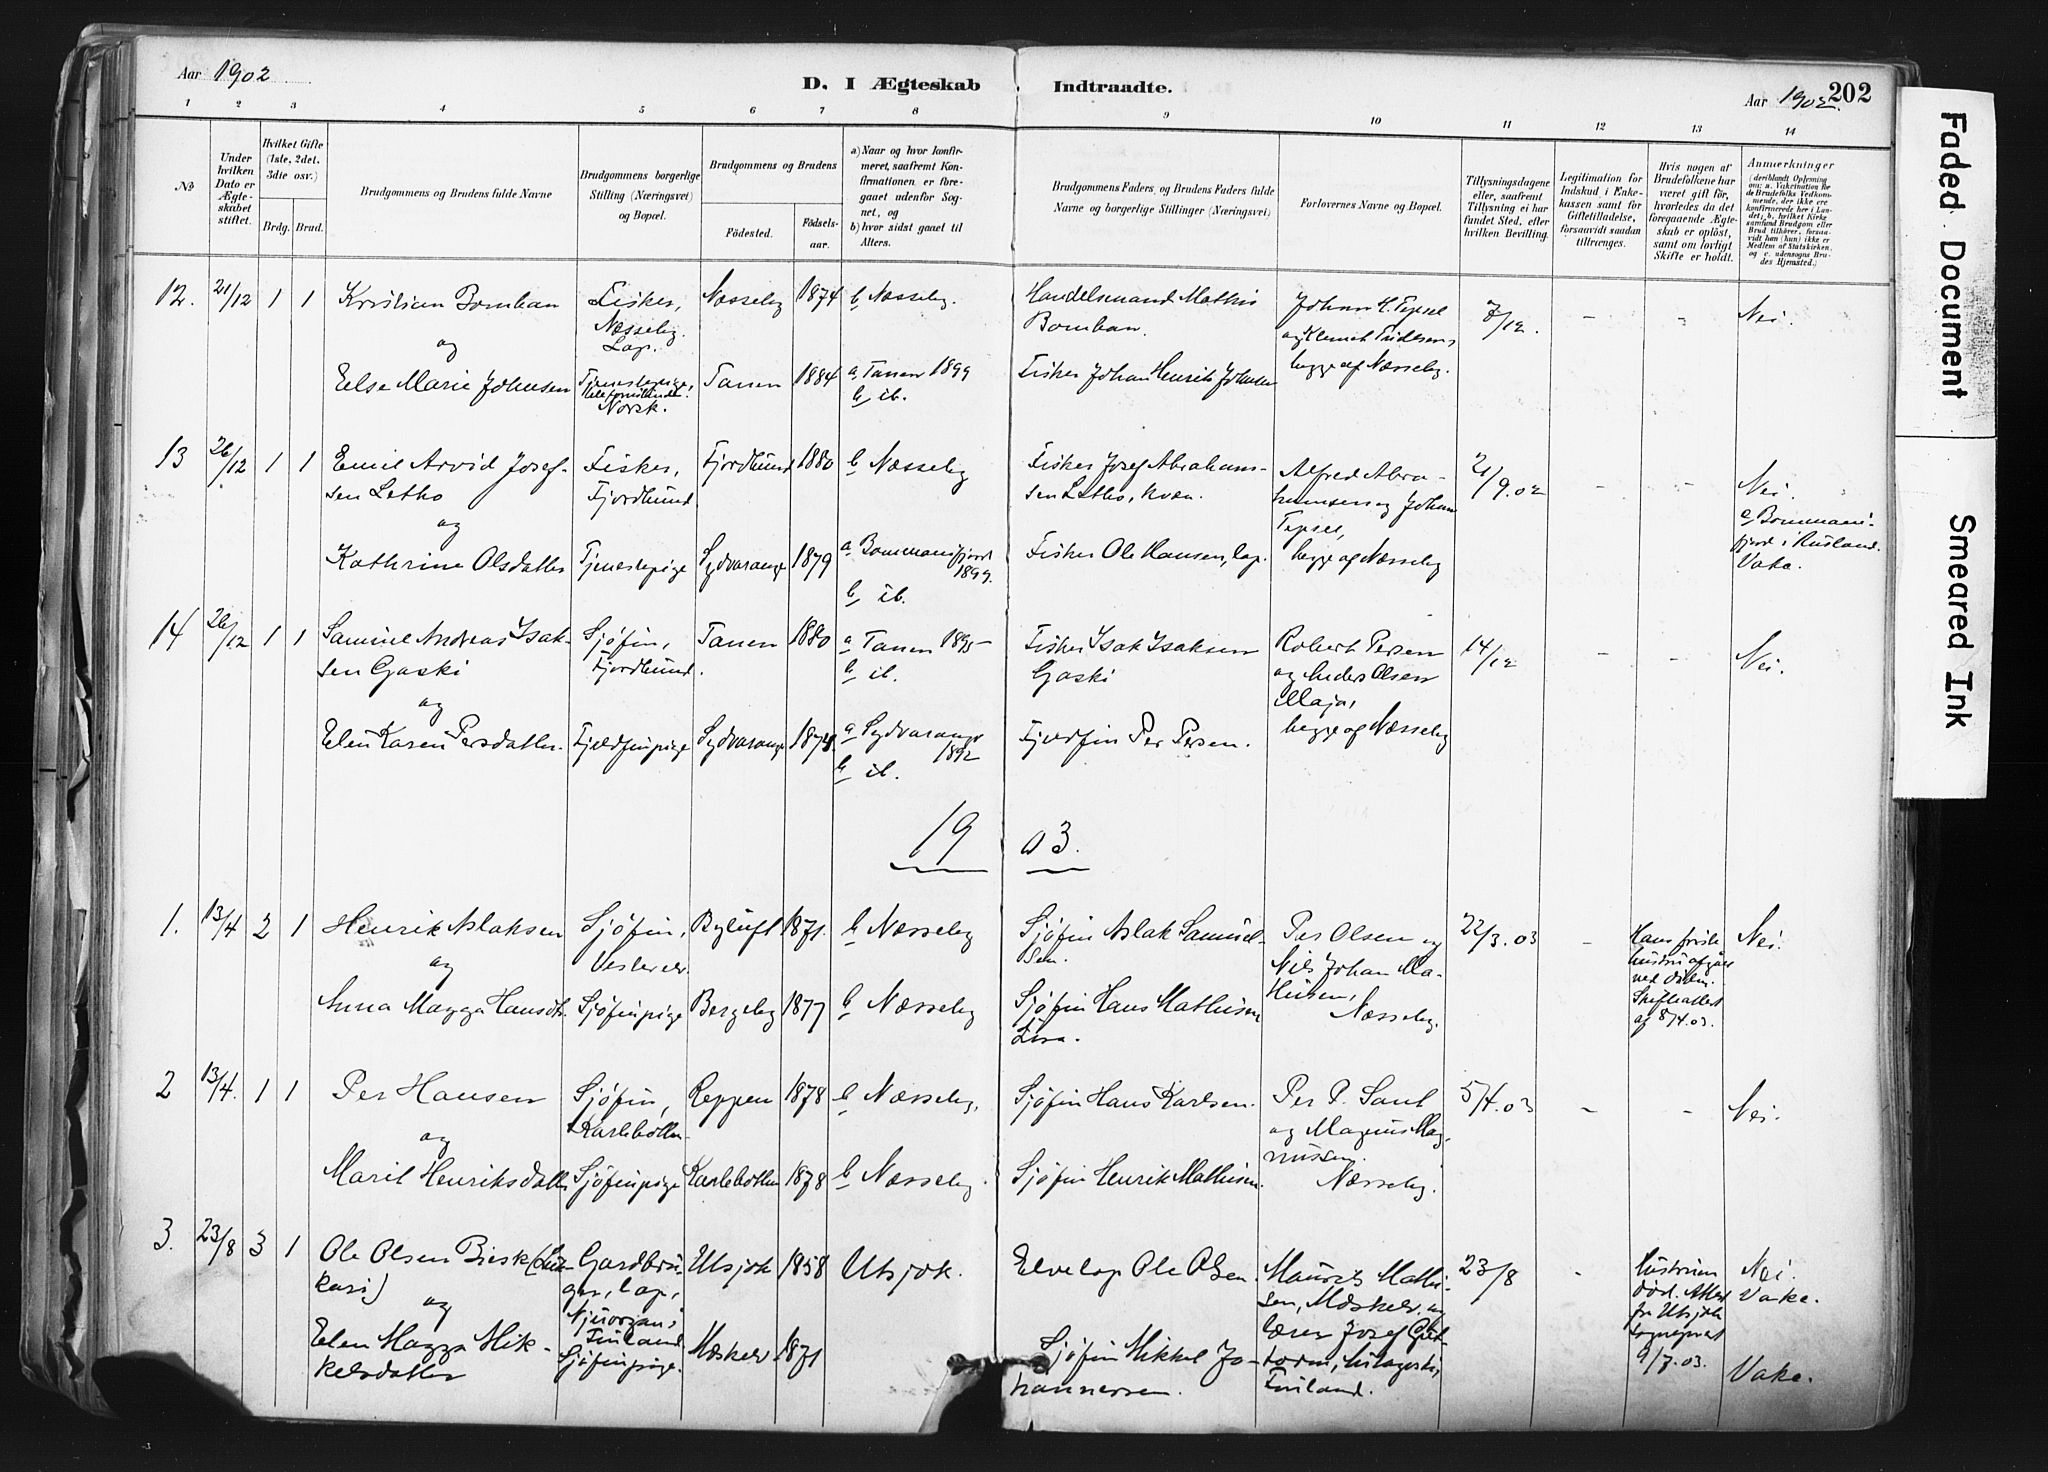 Aar 1902
D. I Ægteskab Indtraadte.
Aar 1902. 202
1 2 3 4 5 6 7 8 9 10 11 12 13 14
№
Under hvilken Dato er Ægteskabet stiftet.
Hvilket Gifte (1ste, 2det, 3die osv.)
Brdg. Brud.
Brudgommens og Brudens fulde Navne
Brudgommens borgerlige Stilling (Næringsvei) og Bopæl.
Brudgommens og Brudens
Fødested.
Fødselsaar.
a) Naar og hvor konfirmeret, saafremt Konfirmationen er foregaaet udenfor Sognet, og
b) hvor sidst gaaet til Alters.
Brudgommens Faders, og Brudens Faders fulde Navne og borgerlige Stillinger (Næringsvei)
Forlovernes Navne og Bopæl.
Tillysningsdagene eller, saafremt Tillysning ei har fundet Sted, efter hvilken Bevilling.
Legitimation for Indskud i Enkekassen samt for Giftetilladelse, forsaavidt saadan tiltrænges.
Hvis nogen af Brudefolkene har været gift før, hvorledes da det foregaaende Ægteskab er opløst, samt om lovligt Skifte er holdt.
Anmærkninger
(deriblandt Oplysning om: a. Vakcination for de Brudefolks Vedkommende, der ikke ere konfirmerede her i Landet; b. hvilket Kirkesamfund Brudgom eller Brud tilhører, forsaavidt han (hun) ikke er Medlem af Statskirken, og c. udensogns Brudes Hjemsted.)
12. 21/12 1 1 Kristian Bomban
og
Fisker, Næsseby. Lap.
Næsseby 1874 b Næsseby.
Handelsmand Mathis Bomban.
Johan H. Tepsel og Klemet
begge af Næsseby.
7/12. - - Nei.
Else Marie Johnsen
Tjenestepige,
Norsk.
Tanen 1884 a Tanen 1899
b ib.
Fisker Johan Henrik Johnsen
13 26/12. 1 1 Emil Arvid Josefsen Letho
og
Fisker, Fjordbund
Fjordbund 1880 b Næsseby
Fisker Josef Abrahamsen Letho, kvæn.
Alfred Abrahamsen og Johan Tepsel,
begge af Næsseby
21/9.02 - - Nei.
Kathrine Olsdatter
Tjenestepige Sydvaranger 1879
a Bommanifjord 1899.
b ib.
Fisker Ole Hansen, lap.
a Bommanifjord i Rusland.
Vakc.
14 26/12 1 1 Samuel Andreas Isaksen Gaski
og
Sjøfin, Fjordbund.
Tanen 1880 a Tanen 1895
b ib.
Fisker Isak Isaksen Gaski
Robert Persen og Anders Olsen Maja,
begge af Næsseby
14/12 - - Nei.
Elen Karen Persdatter.
Fjeldfinpige Sydvaranger 1874.
a Sydvaranger 1892
b ib.
Fjeldfin Per Persen.
19 03.
1. 13/4 2 1 Henrik Aslaksen
og
Sjøfin, Vesterelv.
Byluft 1871. b Næsseby
Sjøfin Aslak Samuelsen.
Per Olsen og Nils Johan Mathisen,
Næsseby.
22/3.03 -
Hans første hustru afgået ved døden. Skifteattest af 8/4.03.
Nei.
Anna Magga Hansdtr.
Sjøfinpige Bergeby 1877 b Næsseby
Sjøfin Hans Mathisen
2 13/4. 1 1 Per Hansen
og
Sjøfin, Karlebotten
Reppen 1878 b Næsseby,
Sjøfin Hans Karlsen.
Per P. Saul og Magnus Magnussen.
Næsseby.
5/4.03 - - Nei.
Marit Henriksdatter
Sjøfinpige Karlebotten 1878 b Næsseby.
Sjøfin Henrik Mathisen.
3. 23/8 3 1 Ole Olsen
og
Gardbruger, lap,
Finland
Utsjok 1858 Utsjok.
Elvelap Ole Olsen.
Maurits Mathisen, Mæskelv. og lærer Josef Guttorm,
Finland.
23/8 -
Hustruen død. Attest fra Utsjok sognepræst 9/7.03.
Nei.
Vakc.
Elen Magga Mikkelsdatter
Sjøfinpige. Mæskelv 1871
Sjøfin Mikkel Johannessen.
Vakc.
Faded Document
Smeared Ink